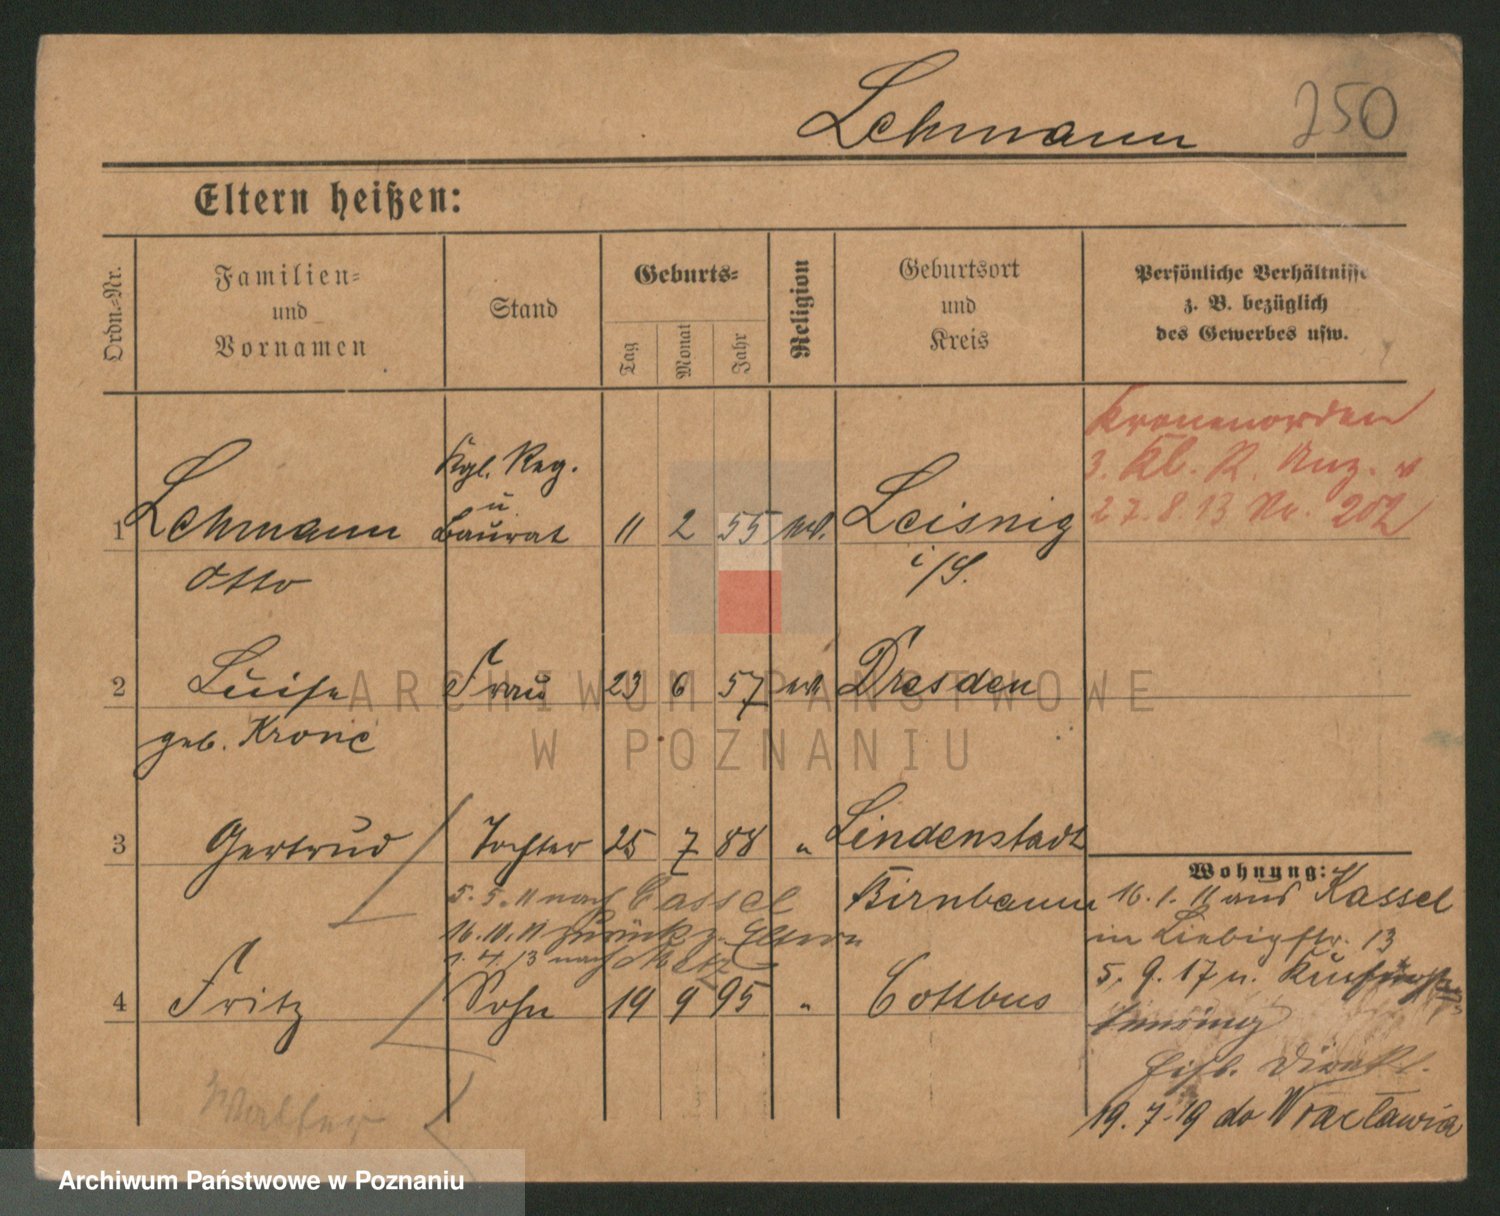 Lehmann 250
Eltern heißen:
Ordn.-Nr.
Familien-
und
Vornamen
Stand
Geburts-
Tag
Monat
Jahr
Religion
Geburtsort
und
Kreis
Persönliche Verhältnisse
z. B. bezüglich
des Gewerbes usw.
Kronenorden
3. Kl. R. Anz. v
27.8.13 Nr. 202
Kgl. Reg.
u
1 Lehmann Baurat 11 2 55 Leisnig
Otto i/S.
2 Luise Frau 23 6 57 Dresden
geb. Krone
3 Gertrud Tochter 25 7 88 " Lindenstadt
Birnbaum
5.5.11 nach Cassel
16.11.11 zurück z. Eltern
1.4.13 nach Metz
4 Fritz Sohn 19 9 95 " Cottbus
Walter
Wohnung:
16.1.11 aus Kassel
in Liebigstr. 13
5.9.17 n.
Eisb. Direkt.
19.7.19 do Wracławia
ARCHIWUM PAŃSTWOWE
W POZNANIU
Archiwum Państwowe w Poznaniu